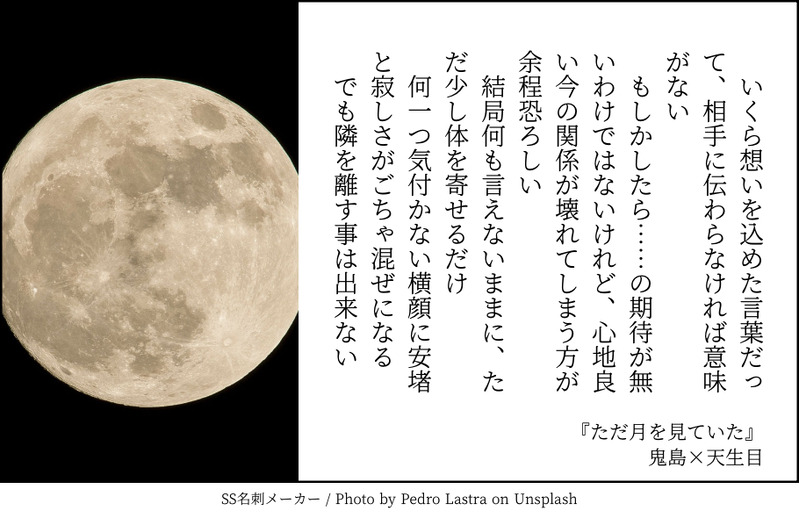 いくら想いを込めた言葉だっ
て、相手に伝わらなければ意味
がない
もしかしたら……の期待が無
いわけではないけれど、心地良
い今の関係が壊れてしまう方が
余程恐ろしい
結局何も言えないままに、た
だ少し体を寄せるだけ
何一つ気付かない横顔に安堵
と寂しさがごちゃ混ぜになる
でも隣を離す事は出来ない
『ただ月を見ていた』
鬼島×天生目
SS名刺メーカー / Photo by Pedro Lastra on Unsplash